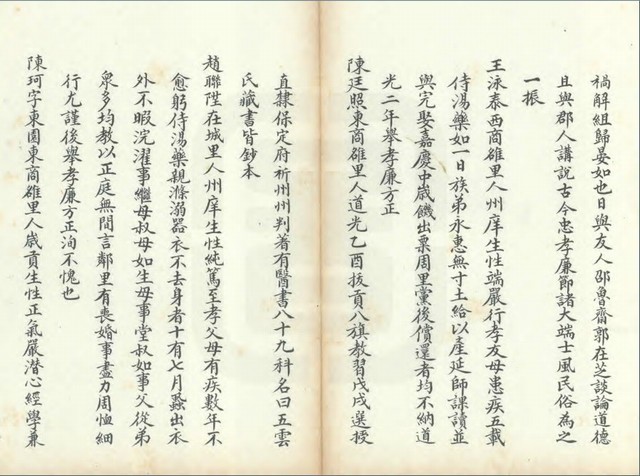 禍解組歸晏如也日與友人邵魯齋郭在芝談論道德
且與郡人講說古今忠孝廉節諸大端士風民俗為之
一振
王泳泰西商雒里人州庠生性端嚴行孝友母患疾五載
侍湯藥如一日族弟永惠無寸土給以產延師課讀並
與完娶嘉慶中歲饑出粟周里黨後償還者均不納道
光二年舉孝廉方正
陳廷照東商雒里人道光乙酉拔貢八旗教習戊戌選授
直隸保定府祈州州判著有醫書八十九科名曰五雲
氏藏書皆鈔本
趙聯陞在城里人州庠生性純篤至孝父母有疾數年不
愈躬侍湯藥親滌溺器衣不去身者十有七月蝨出衣
外不暇浣濯事繼母叔母如生母事堂叔如事父從弟
泉多均教以正庭無間言鄰里有喪婚事盡力周恤細
行尤謹後舉孝廉方正洵不愧也
陳珂字東園東商雒里人歲貢生性正氣嚴潛心經學兼